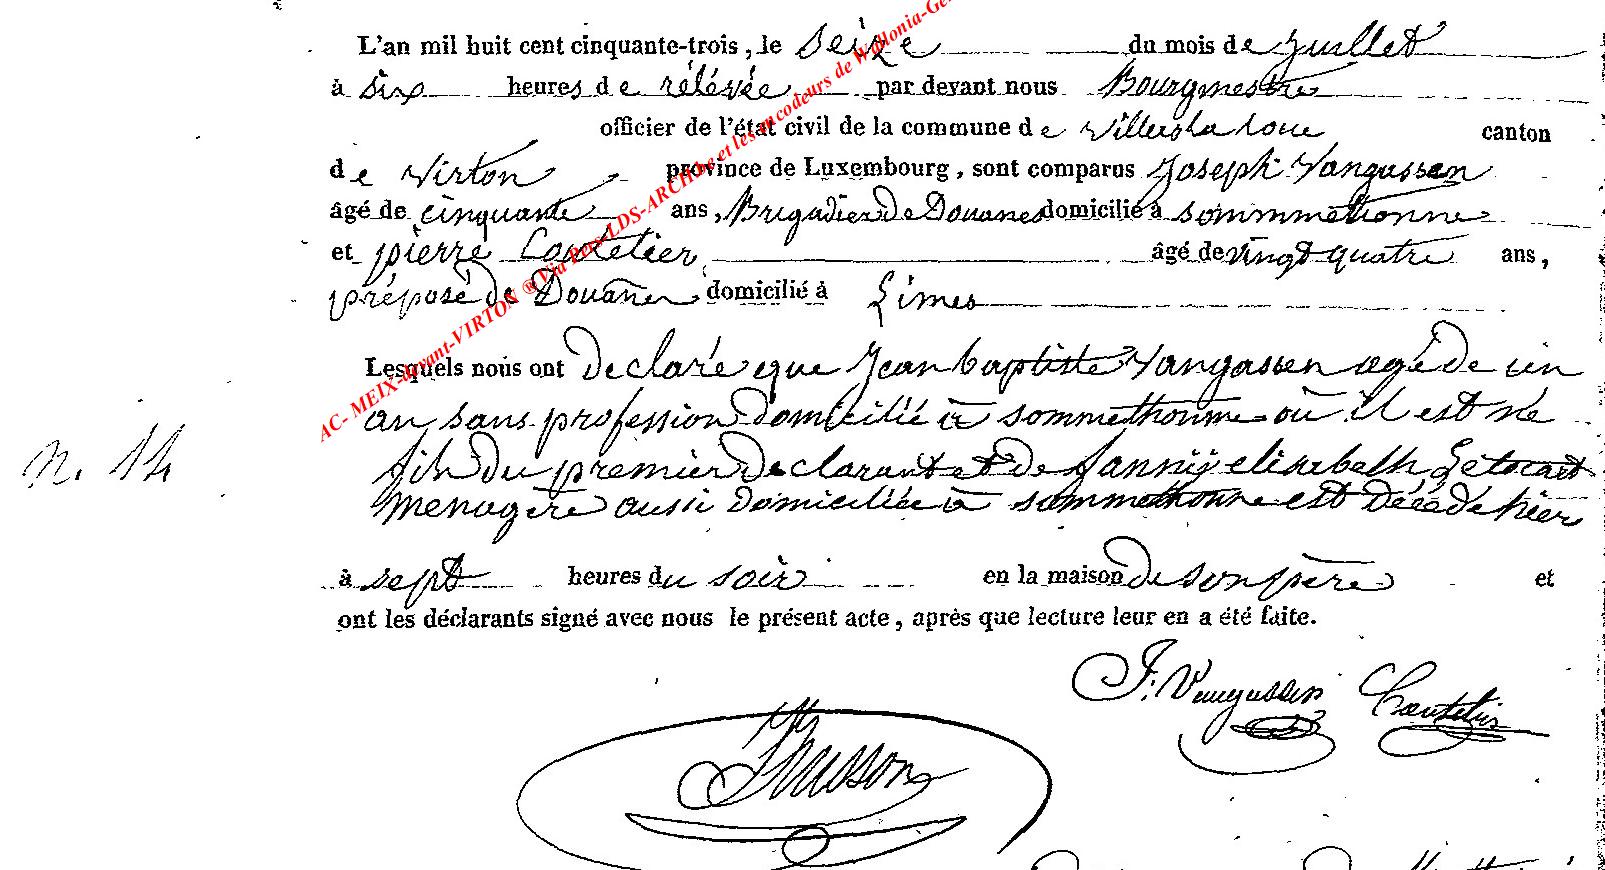 L'an mil huit cent cinquante-trois, le Seize du mois de Juillet
à six heures de rélévée par devant nous Bourgmestre
officier de l'état civil de la commune de villerslaloue canton
de virton province de Luxembourg, sont comparus Joseph Vangassen
âgé de cinquante ans, Brigadier De Douanes domicilié à sommmethonne
et pierre Coutelier âgé de vingt quatre ans,
préposé de Douanes domicilié à Limes
Lesquels nous ont Declaré que Jean baptiste Vangassen agé de un
an sans profession domicilié à sommethonne où il est né
fils Du premier Declarant et de fannÿ elisabeth
n. 14
menagère aussi domiciliée à sommethonne est Décédé hier
à sept heures du soir en la maison De son père et
ont les déclarants signé avec nous le présent acte, après que lecture leur en a été faite.
J. Vangassen Coutelier
Husson
AC- MEIX-devant-VIRTON ® (Via Père-LDS-ARCHbe et les encodeurs de Wallonia-Ge